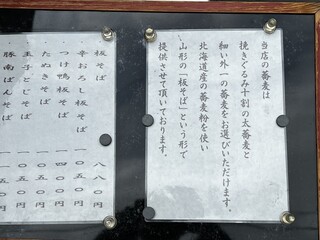 当店の蕎麦は
挽きぐるみ十割の太蕎麦と
細い外一の蕎麦をお選びいただけます。
北海道産の蕎麦粉を使い
山形の「板そば」という形で
提供させて頂いております。
板そば 八八〇円
辛おろし板そば 一〇五〇円
つけ鴨板そば 一四〇〇円
たぬきそば
玉子とじそば 一〇五〇円
豚南ばんそば 一〇五〇円